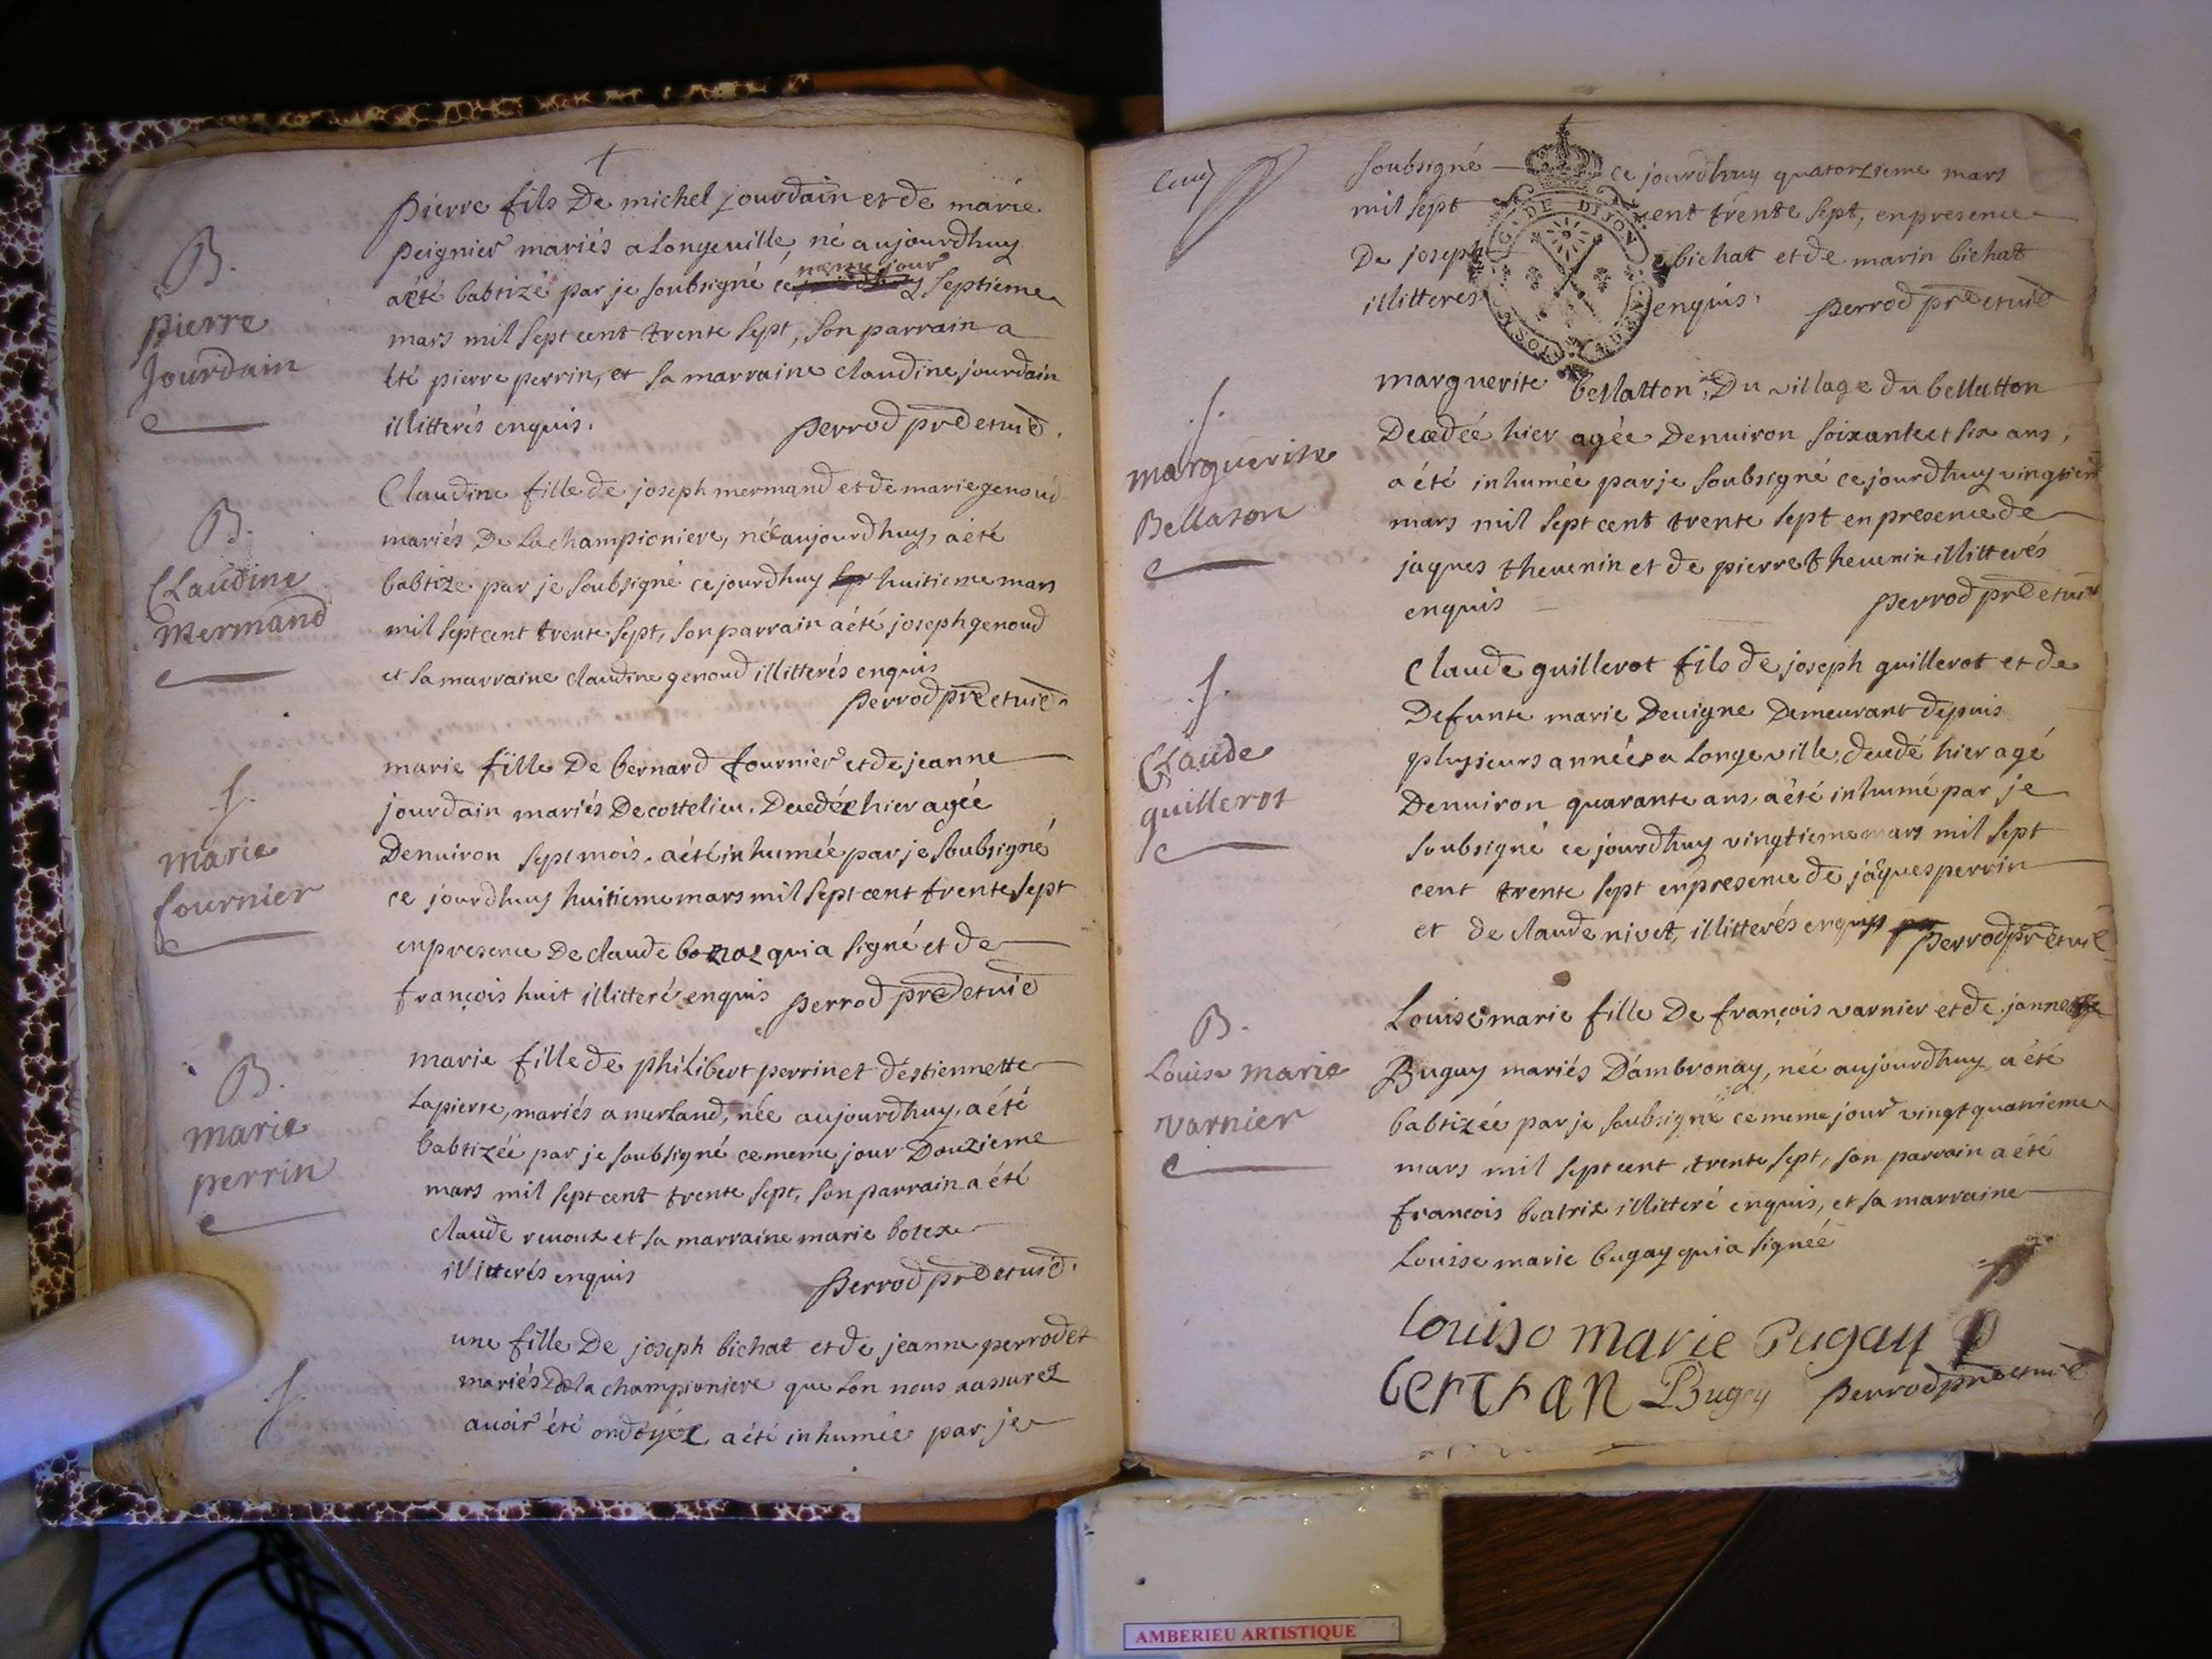 B.
pierre
Jourdain
pierre fils De michel jourdain et de marie
peignier mariés a Longeuille, né aujourdhuy
a été babtizé par je soubsigné ce meme jour septieme
mars mil sept cent trente sept, son parrain a
été pierre perrin, et sa marraine claudine jourdain
illitterés enquis. perrod pre et vic.
B.
Claudine
Mermand
Claudine fille de joseph mermand et de marie genoud
mariés De La championiere, née aujourdhuy, a été
babtize par je soubsigné ce jourdhuy huitieme mars
mil sept cent trente sept, son parrain a été joseph genoud
et sa marraine claudine genoud illitterés enquis
perrod pre et vic.
f.
marie
fournier
marie fille De bernard fournier et de jeanne
jourdain mariés De cottelieu. Decedée hier agée
Denuiron sept mois. a été inhumée par je soubsigné
ce jourdhuy huitieme mars mil sept cent trente sept
en presence De claude bozoz qui a signé et de
françois huit illitteré enquis perrod pre et vic
B.
marie
perrin
marie fille de philibert perrin et destiennette
Lapierre, mariés a merland, née aujourdhuy, a été
babtizée par je soubsigné ce meme jour Douzieme
mars mil sept cent trente sept, son parrain a été
claude revoux et sa marraine marie botex
illitterés enquis perrod pre et vic.
f.
une fille De joseph bichat et de jeanne perrodet
mariés De la championiere que Lon nous a assurez
auoir été ondoyée a été inhumée par je
soubsigné ce jourdhuy quatorzieme mars
mil sept cent trente sept, en presence
De joseph bichat et de marin bichat
illitteres enquis. perrod pre et vic
G. DE DIJON
f.
marguerite
Bellaton
marguerite bellatton, Du village du bellatton
Decedée hier agée Denuiron soixante et six ans,
a été inhumée par je soubsigné ce jourdhuy vingtiem
mars mil sept cent trente sept en presence de
jaques theuenin et de pierre theuenin illitterés
enquis perrod pre et vic
f.
Claude
guillerot
Claude guillerot fils de joseph guillerot et de
Defunte marie Deuigne Demeurant depuis
plusieurs années a Longeville, decedé hier agé
Denuiron quarante ans, a été inhumé par je
soubsigné ce jourdhuy vingtieme mars mil sept
cent trente sept en presence de jaques perrin
et de claude nivet, illitterés enquis perrod pre et vic
B.
Louise marie
varnier
Louise marie fille De françois varnier et de janne
Buguy mariés D'ambronay, née aujourdhuy, a été
babtizée par je soubsigné ce meme jour vingt quatrieme
mars mil sept cent trente sept, son parrain a été
francois beatrix illitteré enquis, et sa marraine
Louise marie bugay qui a signée
Louiso marie Pugay
berTraN Bugey perrod pre et vic
AMBERIEU ARTISTIQUE